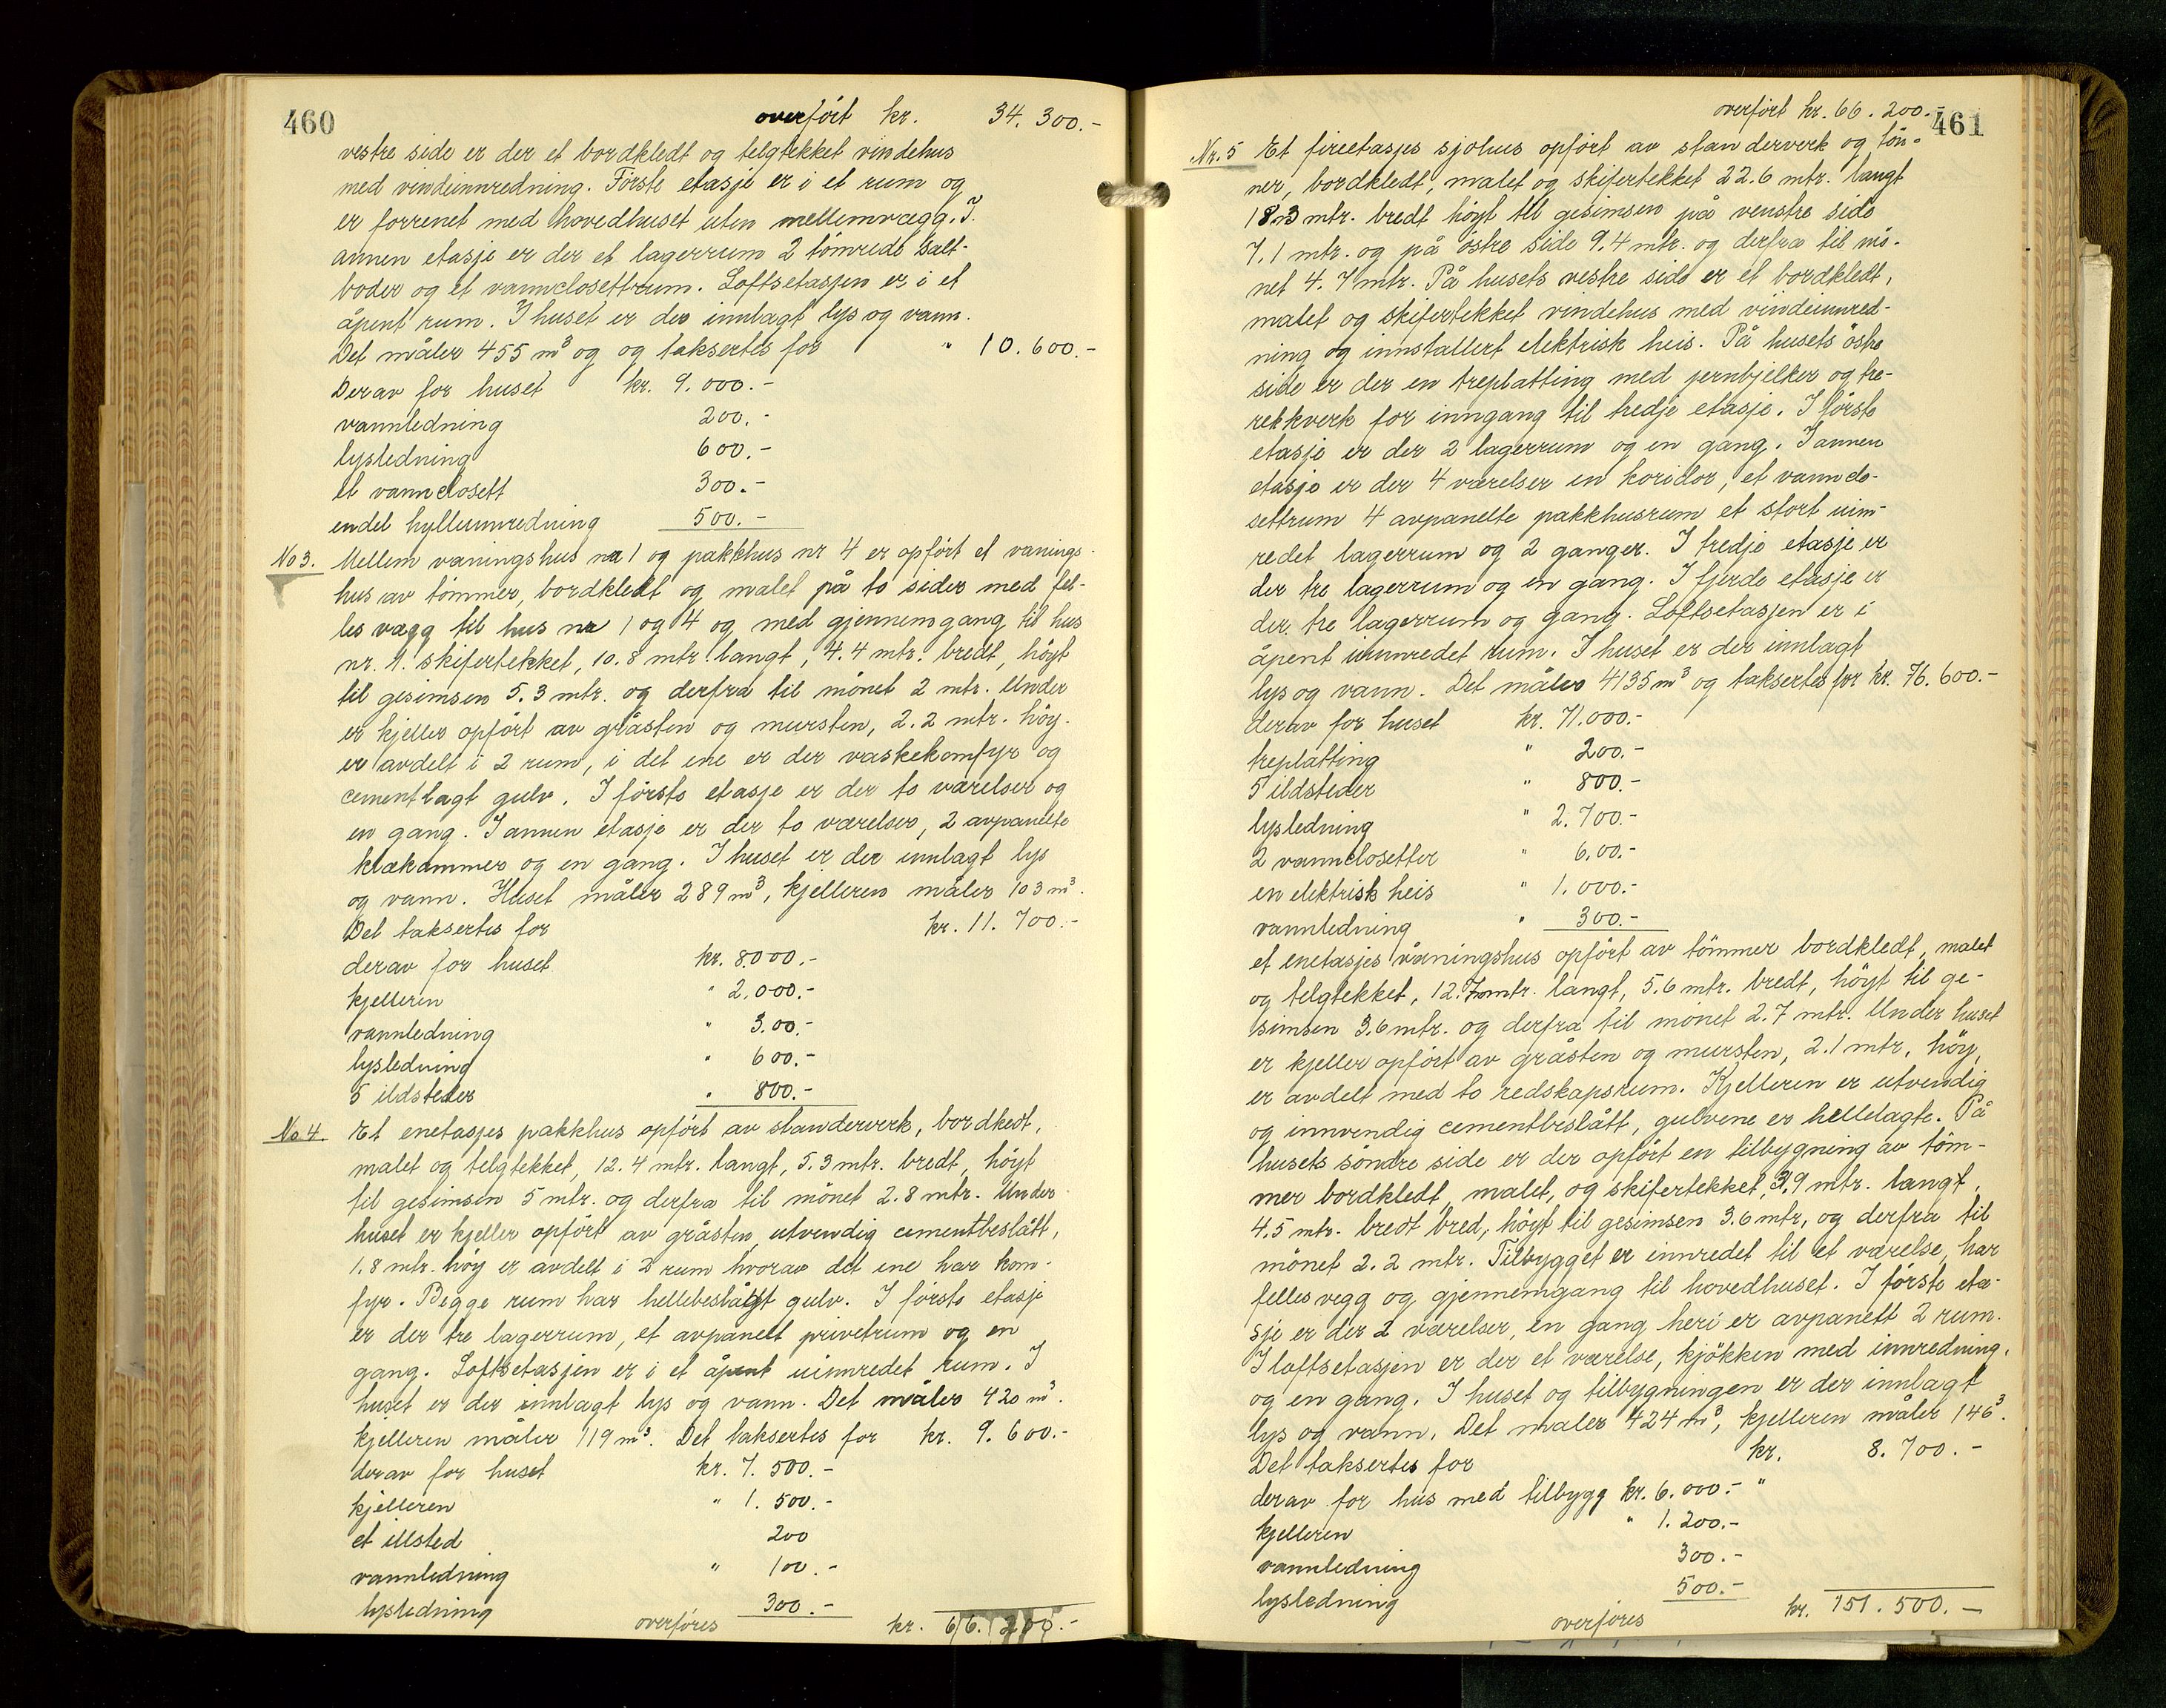 460
overført kr. 34. 300.-
vestre side er der et bordkledt og telgtekket vindehus
med vindeinnredning. Første etasje er i et rum og
er forrenet med hovedhuset uten mellemvægg. I.
annen etasje er der et lagerrum 2 tømrede salt-
boder og et vannclosettrum. Loftsetasjen er i et
åpent rum. I huset er der innlagt lys og vann.
Det måler 455 m³ og og taksertes for " 10. 600.-
Derav for huset kr. 9. 000.-
vannledning 200.-
lysledning 600.-
et vannclosett 300.-
endel hylleinnredning 500.-
No 3. Mellem våningshus nr 1 og pakkhus nr 4 er opført et vånings-
hus av tømmer, bordkledt og malet på to sider med fel-
les vægg til hus nr 1 og 4 og med gjennemgang til hus
nr. 1. skifertekket, 10. 8 mtr. langt, 4. 4 mtr. bredt, høyt
til gesimsen 5. 3 mtr. og derfra til mønet 2 mtr. Under
er kjeller opført av gråsten og mursten, 2. 2 mtr. høy.
er avdelt i 2 rum, i det ene er der vaskekomfyr og
cementlagt gulv. I første etasje er der to værelser og
en gang. I annen etasje er der to værelser, 2 avpanelte
klækammer og en gang. I huset er der innlagt lys
og vann. Huset måler 289 m³, kjelleren måler 103 m³.
Det taksertes for kr. 11. 700.-
derav for huset kr. 8000.-
kjelleren " 2.000.-
vannledning " 3.00.-
lysledning " 600.-
5 ildsteder " 800.-
No. 4 Et enetasjes pakkhus opført av standerverk, bordkedt,
malet og telgtekket, 12. 4 mtr. langt, 5. 3 mtr. bredt, høyt
til gesimsen 5 mtr. og derfra til mønet 2. 8 mtr. Under
huset er kjeller opført av gråsten, utvendig cementbeslått,
1. 8 mtr. høy er avdelt i 2 rum hvorav det ene har kom-
fyr. Begge rum har hellebeslått gulv. I første etasje
er der tre lagerrum, et avpanelt privetrum og en
gang. Loftsetasjen er i et åpent uinnredet rum. I
huset er der innlagt lys og vann. Det måler 420 m³.
kjelleren måler 119 m³. Det taksertes for kr. 9. 600.-
derav for huset kr. 7. 500.-
kjelleren " 1. 500.-
et illsted 200
vannledning " 100.-
lysledning 300.-
overføres kr. 66. 200.-
461
overført kr. 66. 200.-
Nr. 5 Et fireetasjes sjøhus opført av standerverk og tøn-
ner, bordkledt, malet og skifertekket 22. 6 mtr. langt
18.3 mtr. bredt høyt til gesimsen på venstre side
7. 1 mtr. og på østre side 9. 4 mtr. og derfra til mø-
net 4. 7 mtr. På husets vestre side er et bordkledt,
malet og skifertekket vindehus med vindeinnred-
ning og innstallert elektrisk heis. På husets østre
side er der en treplatting med jernbjelker og tre-
rekkverk for inngang til tredje etasje. I første
etasje er der 2 lagerrum og en gang. I annen
etasje er der 4 værelser en koridor, et vannclo-
settrum 4 avpanelte pakkhusrum et stort uinn-
redet lagerrum og 2 ganger. I tredje etasje er
der tre lagerrum og en gang. I fjerde etasje er
der tre lagerrum og gang. Loftsetasjen er i
åpent uinnredet rum. I huset er der innlagt
lys og vann. Det måler 4135 m³ og taksertes for kr. 76. 600.-
derav for huset kr. 71.000.-
treplatting " 200.-
5 ildsteder " 800.-
lysledning " 2. 700.-
2 vannclosetter " 6,00.-
en elektrisk heis " 1. 000.-
vannledning " 300.-
et enetasjes våningshus opført av tømmer bordkledt, malet
og telgtekket, 12. 7 mtr. langt, 5. 6 mtr. bredt, høyt til ge-
simsen 3. 6 mtr. og derfra til mønet 2. 7 mtr. Under huset
er kjeller opført av gråsten og mursten, 2. 1 mtr. høy,
er avdelt med to redskapsrum. Kjelleren er utvendig
og innvendig cementbeslått, gulvene er hellelagte. På
husets søndre side er der opført en tilbygning av tøm-
mer bordkledt, malet, og skifertekket, 3. 9 mtr. langt,
4. 5 mtr. bredt bred, høyt til gesimsen 3. 6 mtr, og derfra til
mønet 2. 2 mtr. Tilbygget er innredet til et værelse, har
felles vegg og gjennemgang til hovedhuset. I første eta-
sje er der 2 værelser, en gang heri er avpanelt 2 rum.
I loftsetasjen er der et værelse, kjøkken med innredning,
og en gang. I huset og tilbygningen er der innlagt
lys og vann. Det maler 424 m³, kjelleren måler 146³.
Det taksertes for kr. 8. 700.-
derav for hus med tilbygg kr. 6. 000.- "
kjelleren " 1. 200.-
vannledning 300.-
lysledning 500.-
overføres kr. 151. 500.-